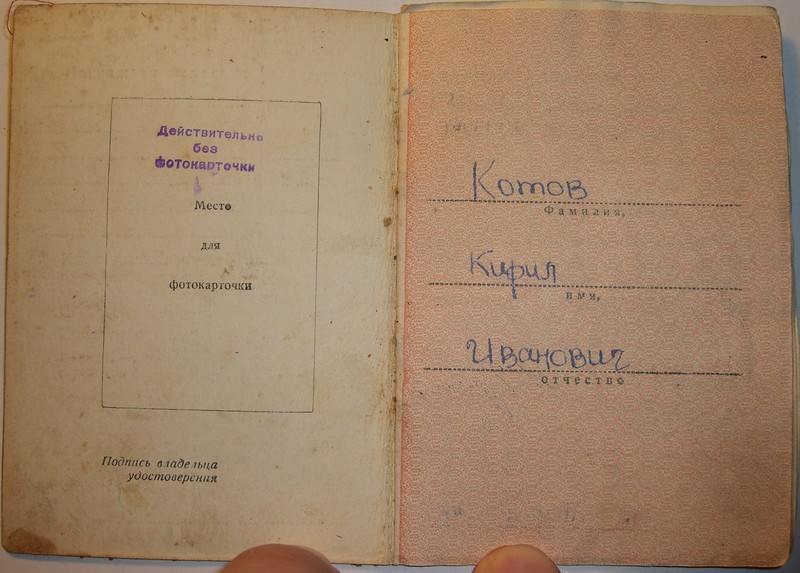 Действительно
без
фотокарточки
Место
для
фотокарточки
Подпись владельца
удостоверения
Котов
Фамилия,
Кирил
имя,
Иванович
отчество